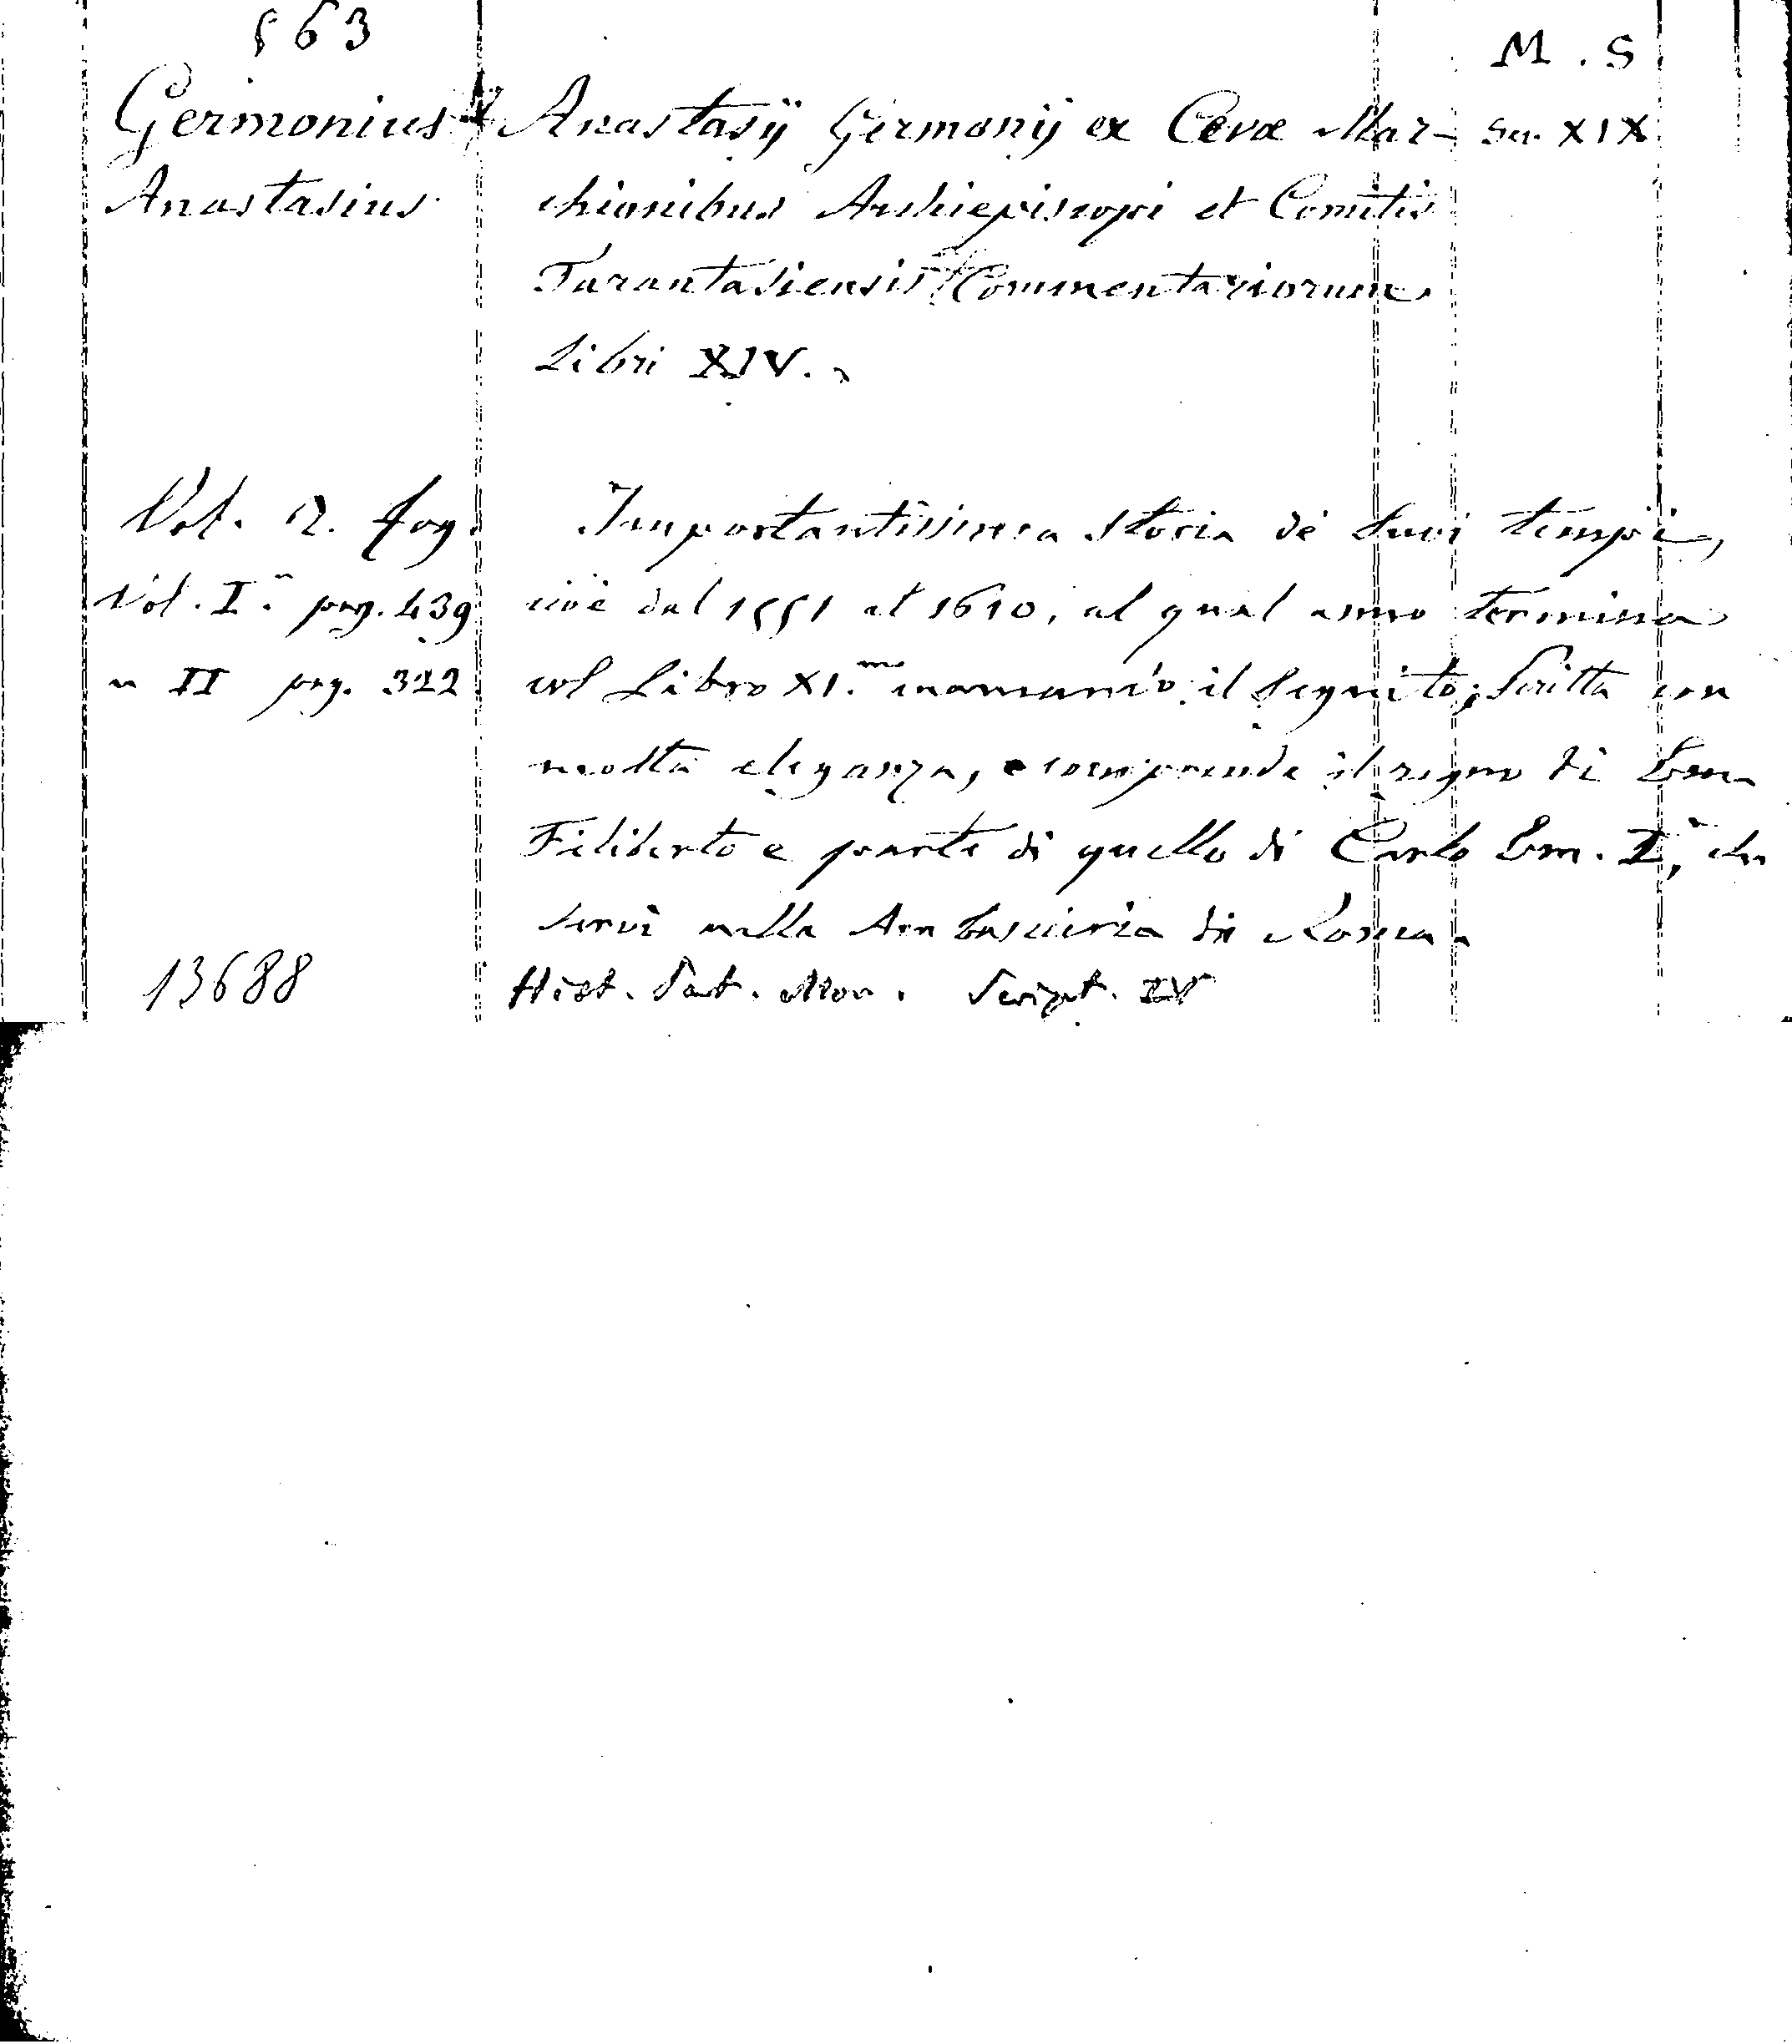 563
M.S
Germonius Anastasij Germonij ex Cevæ Mar- Sec. XIX
Anastasius chionibus Archiepiscopi et Comitis
Tarantasiensis Commentariorum
Libri XIV.
Vol. 2. fog. Importantissima storia de suoi tempi,
Vol. I.° pag. 439 cioè dal 1551 al 1610, al qual anno termina
" II pag. 322 col Libro XI.mo mancando il seguito; Scritta con
molta eleganza, e comprende il regno di Em.
Filiberto e parte di quello di Carlo Em. I°, che
servì nella Ambasciaria di Roma.
13688 Hist. Pat. Mon. Script. IV